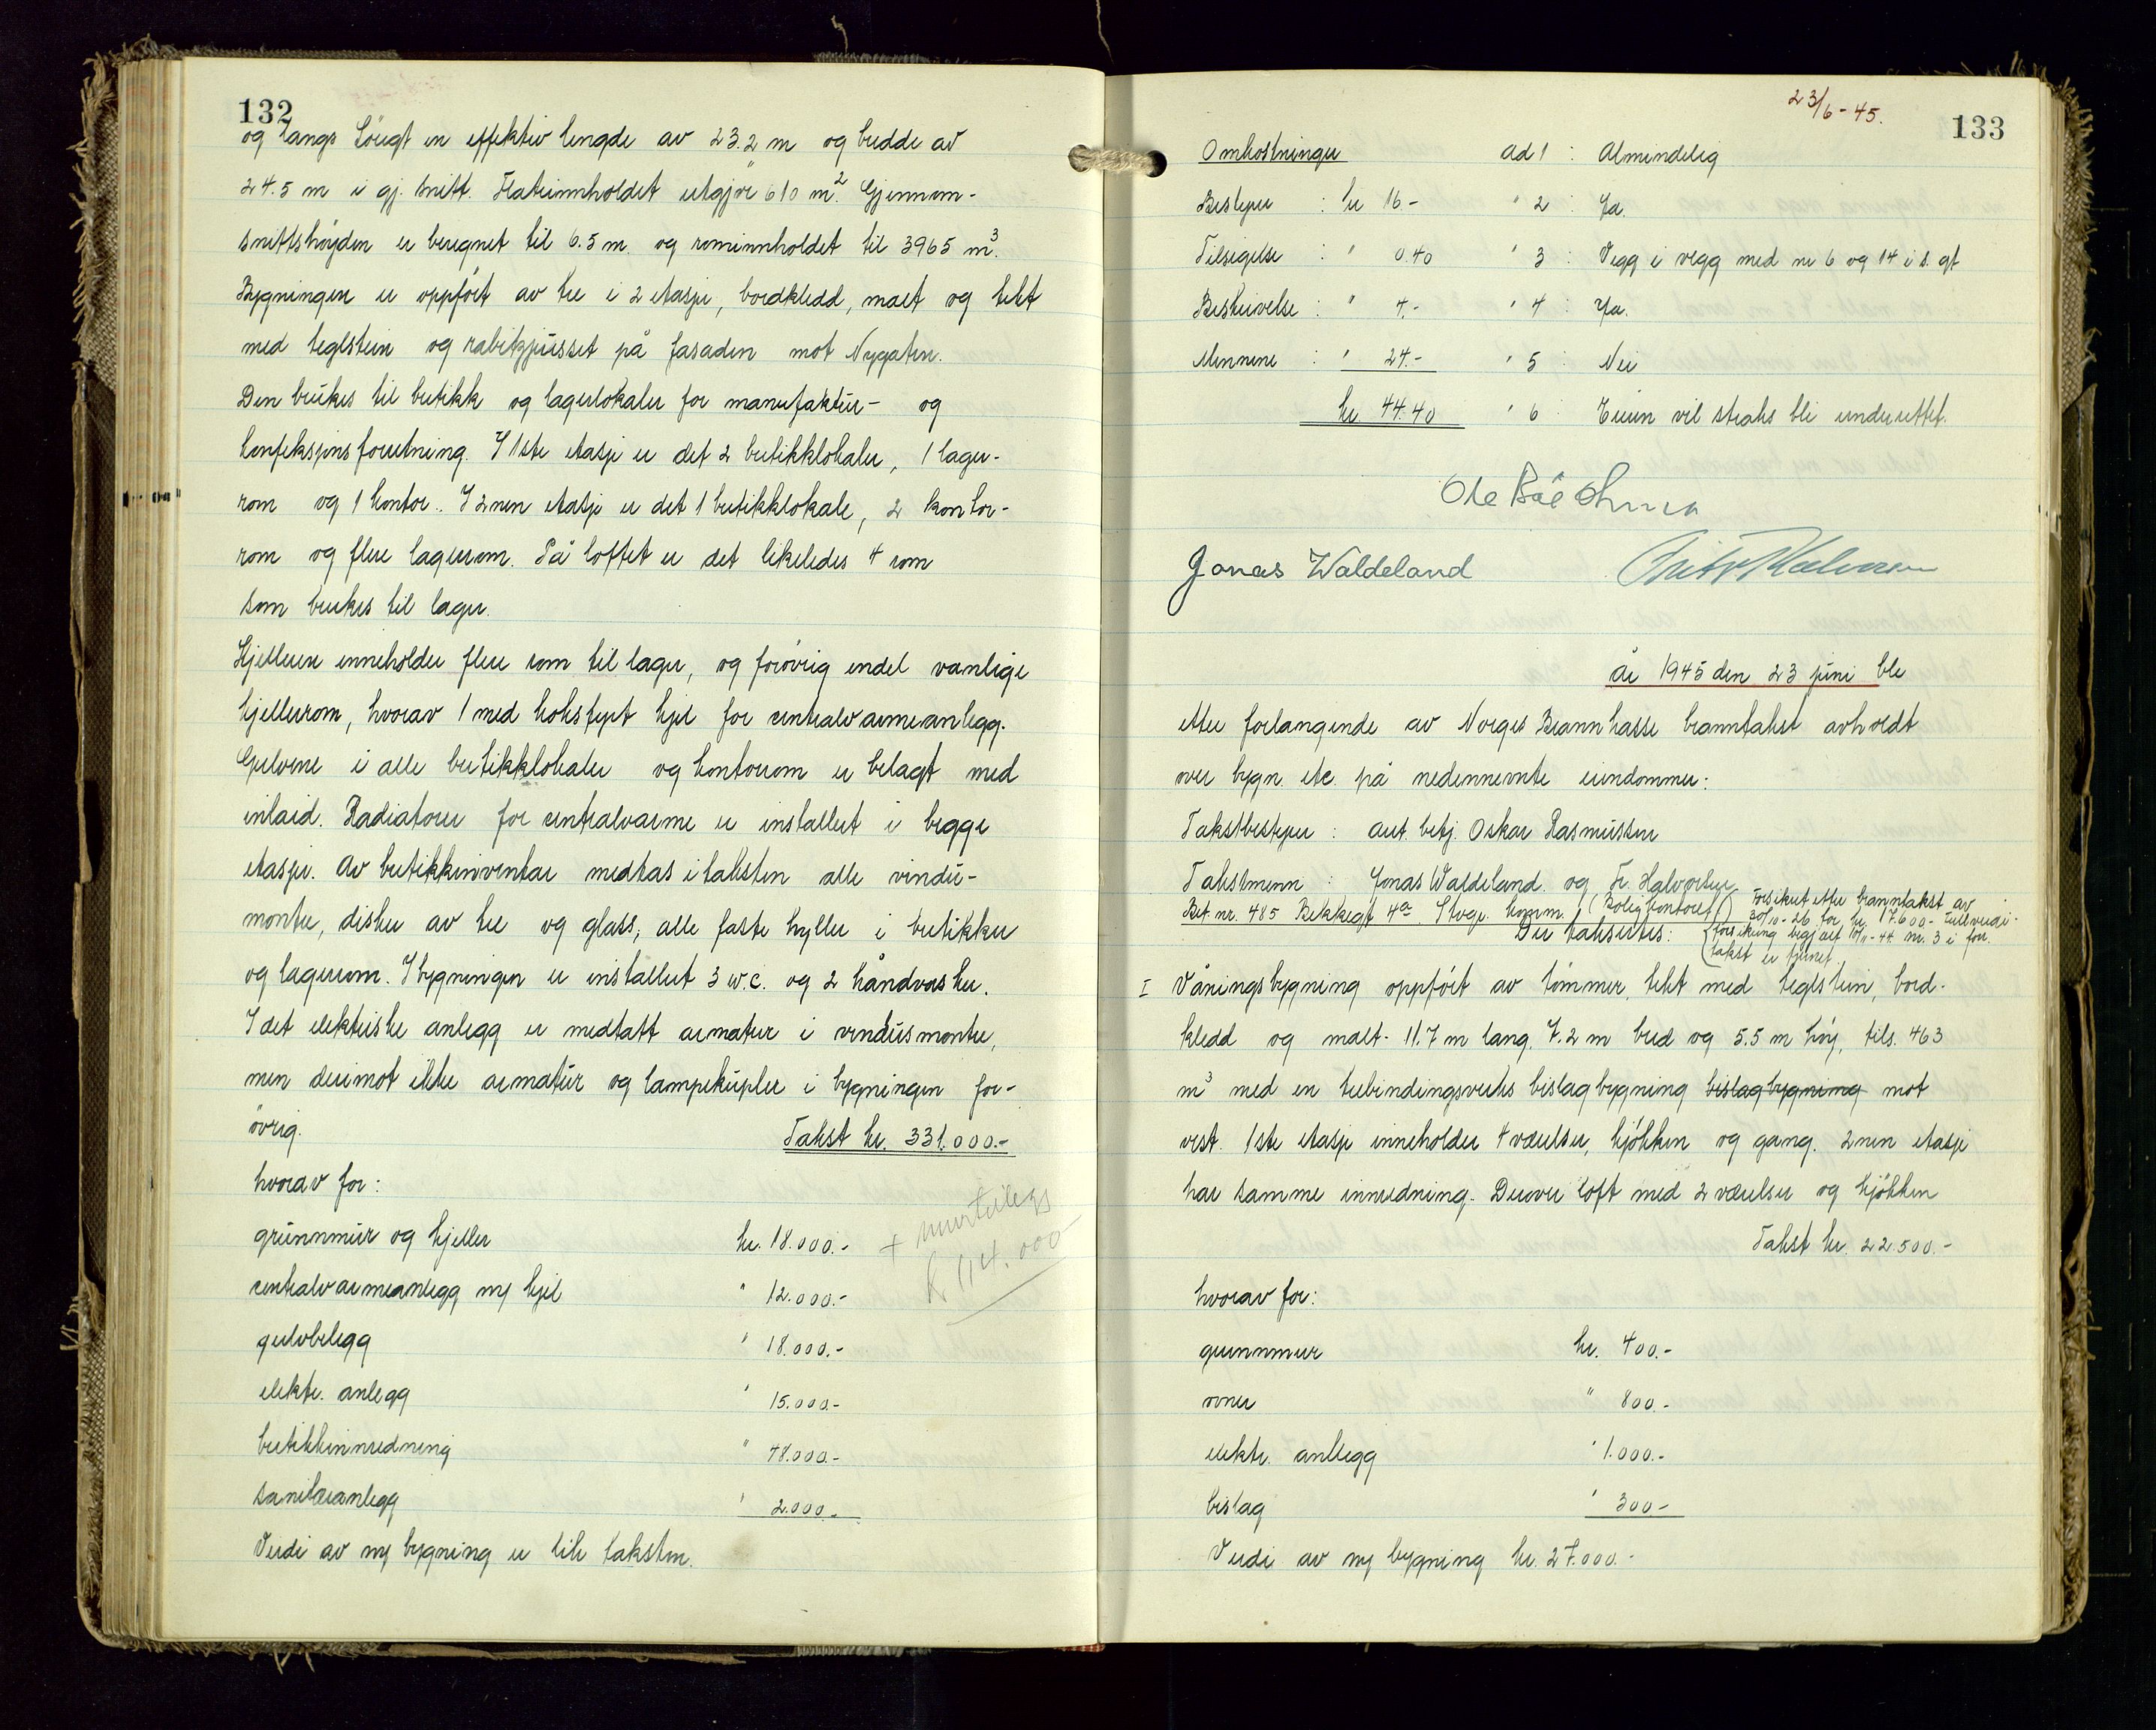 132
og langs Sörgt en effektiv lengde av 23.2 m og bredde av
24.5 m i gj. snitt. Flateinnholdet utgjör 610 m². Gjennom-
snittshöyden er beregnet til 6.5 m. og rominnholdet til 3965 m³.
Bygningen er oppfört av tre i 2 etasjer, bordkledd, malt og tekt
med teglstein og rabitzpusset på fasaden mot Nygaten.
Den brukes til butikk og lagerlokaler for manufaktur- og
konfeksjonsforretning. I 1ste etasje er det 2 butikklokaler, 1 lager-
rom og 1 kontor. I 2nen etasje er det 1 butikklokale, 2 kontor-
rom og flere lagerrom. På loftet er det likeledes 4 rom
som brukes til lager.
Kjelleren inneholder flere rom til lager, og forövrig endel vanlige
kjellerrom, hvorav 1 med koksfyrt kjel for centralvarmeanlegg.
Gulvene i alle butikklokaler og kontorrom er belagt med
inlaid. Radiatorer for centralvarme er installert i begge
etasjer. Av butikkinventar medtas i taksten alle vindu-
montre, disker av tre og glass, alle faste hyller i butikker
og lagerrom. I bygningen er installert 3 w.c. og 2 håndvasker.
I det elektriske anlegg er medtatt armatur i vindusmontre,
men derimot ikke armatur og lampekupler i bygningen for-
övrig.
Takst kr. 331.000.-
hvorav for:
grunnmur og kjeller kr. 18.000.-
+ murtillegg
k 114.000
centralvarmeanlegg m/ kjel " 12.000.-
gulvbelegg " 18.000.-
elektr. anlegg " 15.000.-
butikkinnredning " 48.000.-
sanitæranlegg " 2.000.-
Verdi av ny bygning er lik taksten.
23/6-45.
133
Omkostninger ad 1 : Almindelig
Bestyrer : kr 16- " 2 : Ja.
Tilsigelse : " 0.40 " 3 : Vegg i vegg med nr 6 og 14 i s. gt
Beskrivelse : " 4.- " 4 : Ja.
Mennene : " 24.- " 5 : Nei
kr. 44.40 " 6 : Eieren vil straks bli underrettet.
Ole Böe
Jonas Waldeland
Fritz Halvorsen
År 1945 den 23 juni ble
etter forlangende av Norges Brannkasse branntakst avholdt
over bygn. etc. på nedennevnte eiendommer:
Takstbestyrer : aut. betj. Oskar Rasmussen
Takstmenn : Jonas Waldeland og Fr. Halvorsen
Bet. nr. 485 Bekkegt 4ª Stvgr. komm. (Boligkontoret)
Forsikret etter branntakst av
30/10-26 for kr. 17.600- Fullverdi-
forsikring begj. alt 10/11-44 nr. 3 i forr.
takst er fjernet
Der takseres:
I Våningsbygning oppfört av tömmer, tekt med teglstein, bord-
kledd og malt- 11.7 m lang, 7.2 m bred og 5.5 m höy, tils. 463
m³ med en trebindingsverks bislagbygning bislagbygning mot
vest. 1ste etasje inneholder 4 værelser, kjökken og gang. 2nen etasje
har samme innredning. Derover loft med 2 værelser og kjökken
Takst kr. 22.500.-
hvorav for:
grunnmur kr. 400.-
ovner " 800.-
elektr. anlegg " 1.000.-
bislag " 300-
Verdi av ny bygning kr. 27.000.-